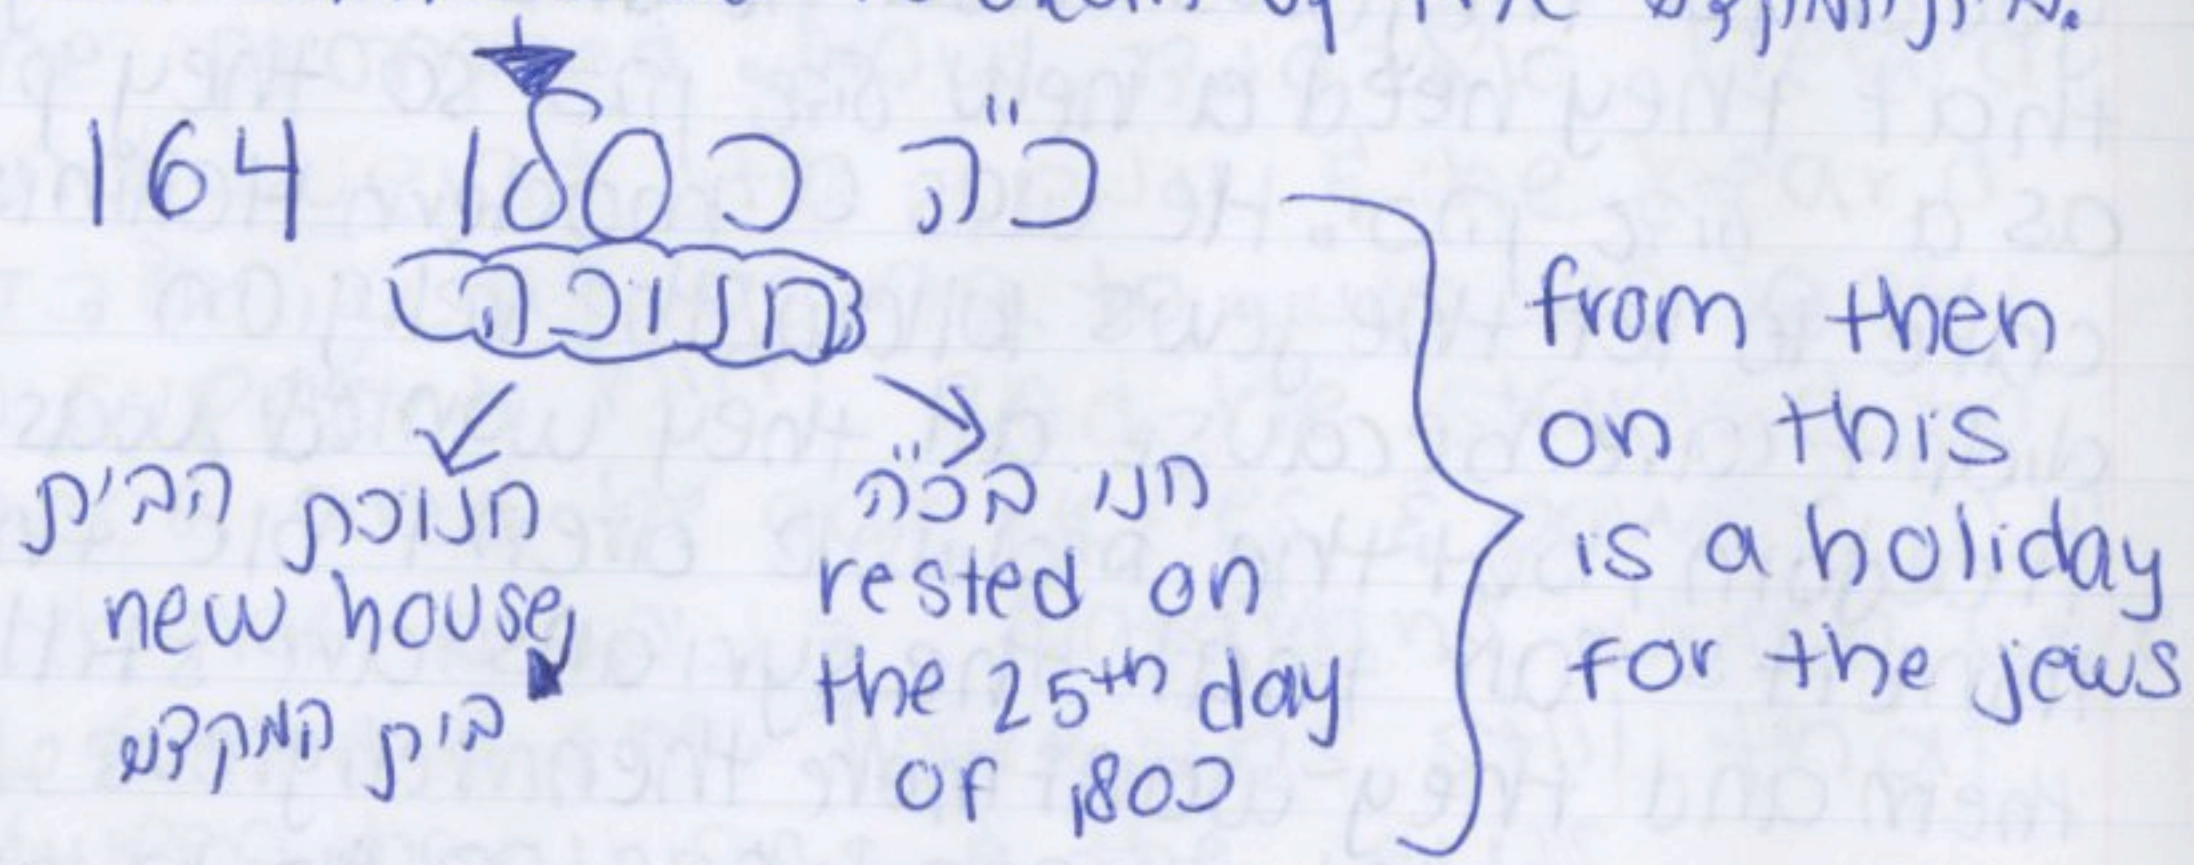 of the
כ״ה כסלו 164
חנוכה
חנוכת הבית
new house
בית המקדש
חנו בכ״ה
rested on
the 25th day
of כסלו
from then
on this
is a holiday
for the jews